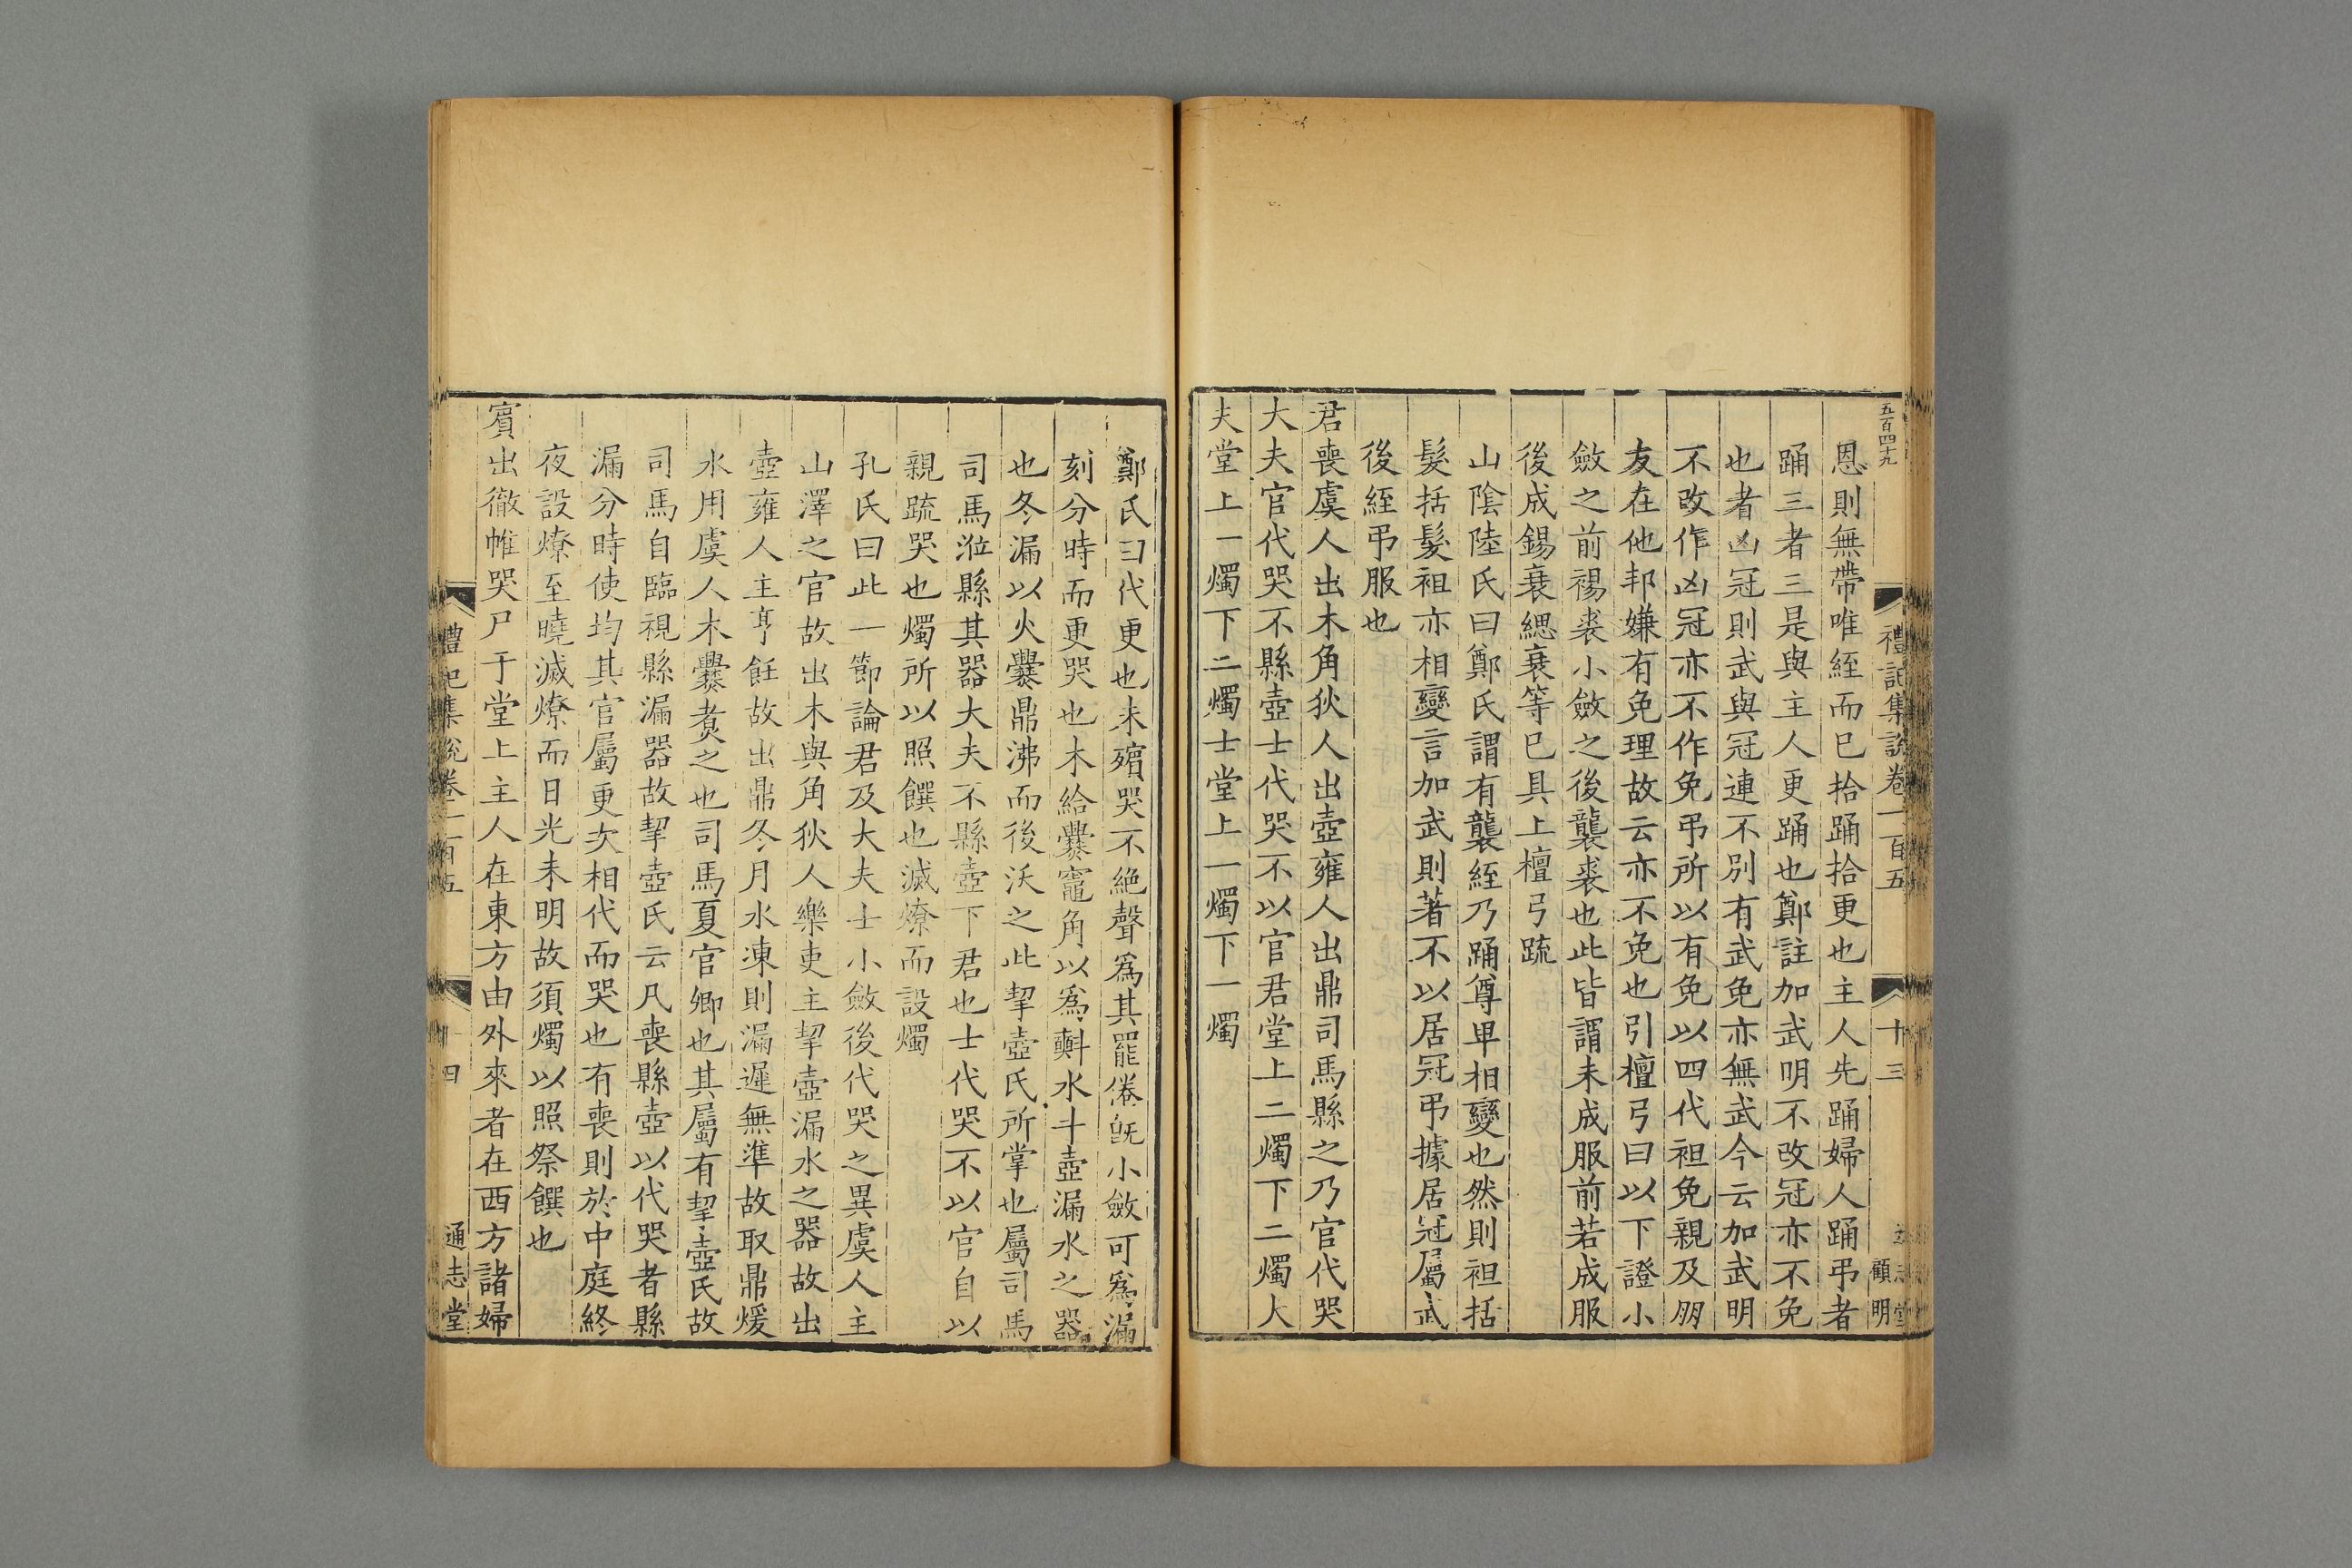 五百四十九
禮記集說卷一百五
十三
顧明
恩則無帶唯絰而巳拾踊拾更也主人先踊婦人踊弔者
踊三者三是與主人更踊也鄭註加武明不改冠亦不免
也者凶冠則武與冠連不別有武免亦無武今云加武明
不改作凶冠亦不作免弔所以有免以四代袒免親及朋
友在他邦嫌有免理故云亦不免也引檀弓曰以下證小
斂之前裼裘小斂之後襲裘也此皆謂未成服前若成服
後成錫衰緦衰等巳具上檀弓疏
山陰陸氏曰鄭氏謂有襲絰乃踊尊卑相變也然則袒括
髮括髮袒亦相變言加武則著不以居冠弔據居冠屬武
後絰弔服也
君喪虞人出木角狄人出壺雍人出鼎司馬縣之乃官代哭
大夫官代哭不縣壺士代哭不以官君堂上二燭下二燭大
夫堂上一燭下二燭士堂上一燭下一燭
鄭氏曰代更也未殯哭不絶聲爲其罷倦旣小斂可爲漏
刻分時而更哭也木給爨竈角以爲㪺水斗壺漏水之器
也冬漏以火爨鼎沸而後沃之此挈壺氏所掌也屬司馬
司馬涖縣其器大夫不縣壺下君也士代哭不以官自以
親疏哭也燭所以照饌也滅燎而設燭
孔氏曰此一節論君及大夫士小斂後代哭之異虞人主
山澤之官故出木與角狄人樂吏主挈壺漏水之器故出
壺雍人主亨飪故出鼎冬月水凍則漏遲無準故取鼎煖
水用虞人木爨煑之也司馬夏官卿也其屬有挈壺氏故
司馬自臨視縣漏器故挈壺氏云凡喪縣壺以代哭者縣
漏分時使均其官屬更次相代而哭也有喪則於中庭終
夜設燎至曉滅燎而日光未明故須燭以照祭饌也
賓出徹帷哭尸于堂上主人在東方由外來者在西方諸婦
禮記集說卷一百五
十四
通志堂